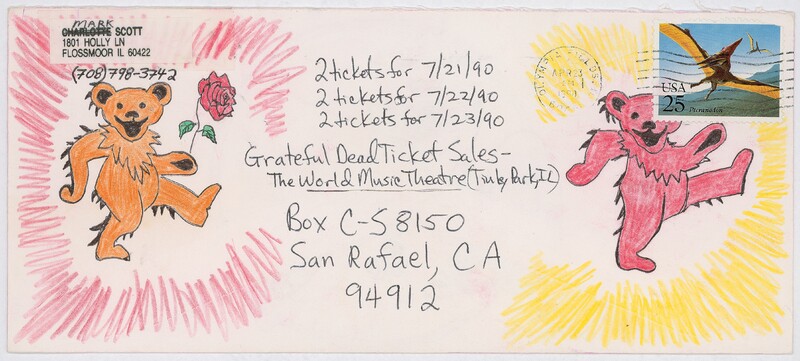 MARK
CHARLOTTE SCOTT
1801 HOLLY LN
FLOSSMOOR IL 60422
(708)798-3742
2 tickets for 7/21/90
2 tickets for 7/22/90
2 tickets for 7/23/90
Grateful Dead Ticket Sales-
The World Music Theatre (Tinley Park, IL)
Box C-S8150
San Rafael, CA
94912
OLYMPIA FIELDS
APR 23
USA
25
Pteranodon